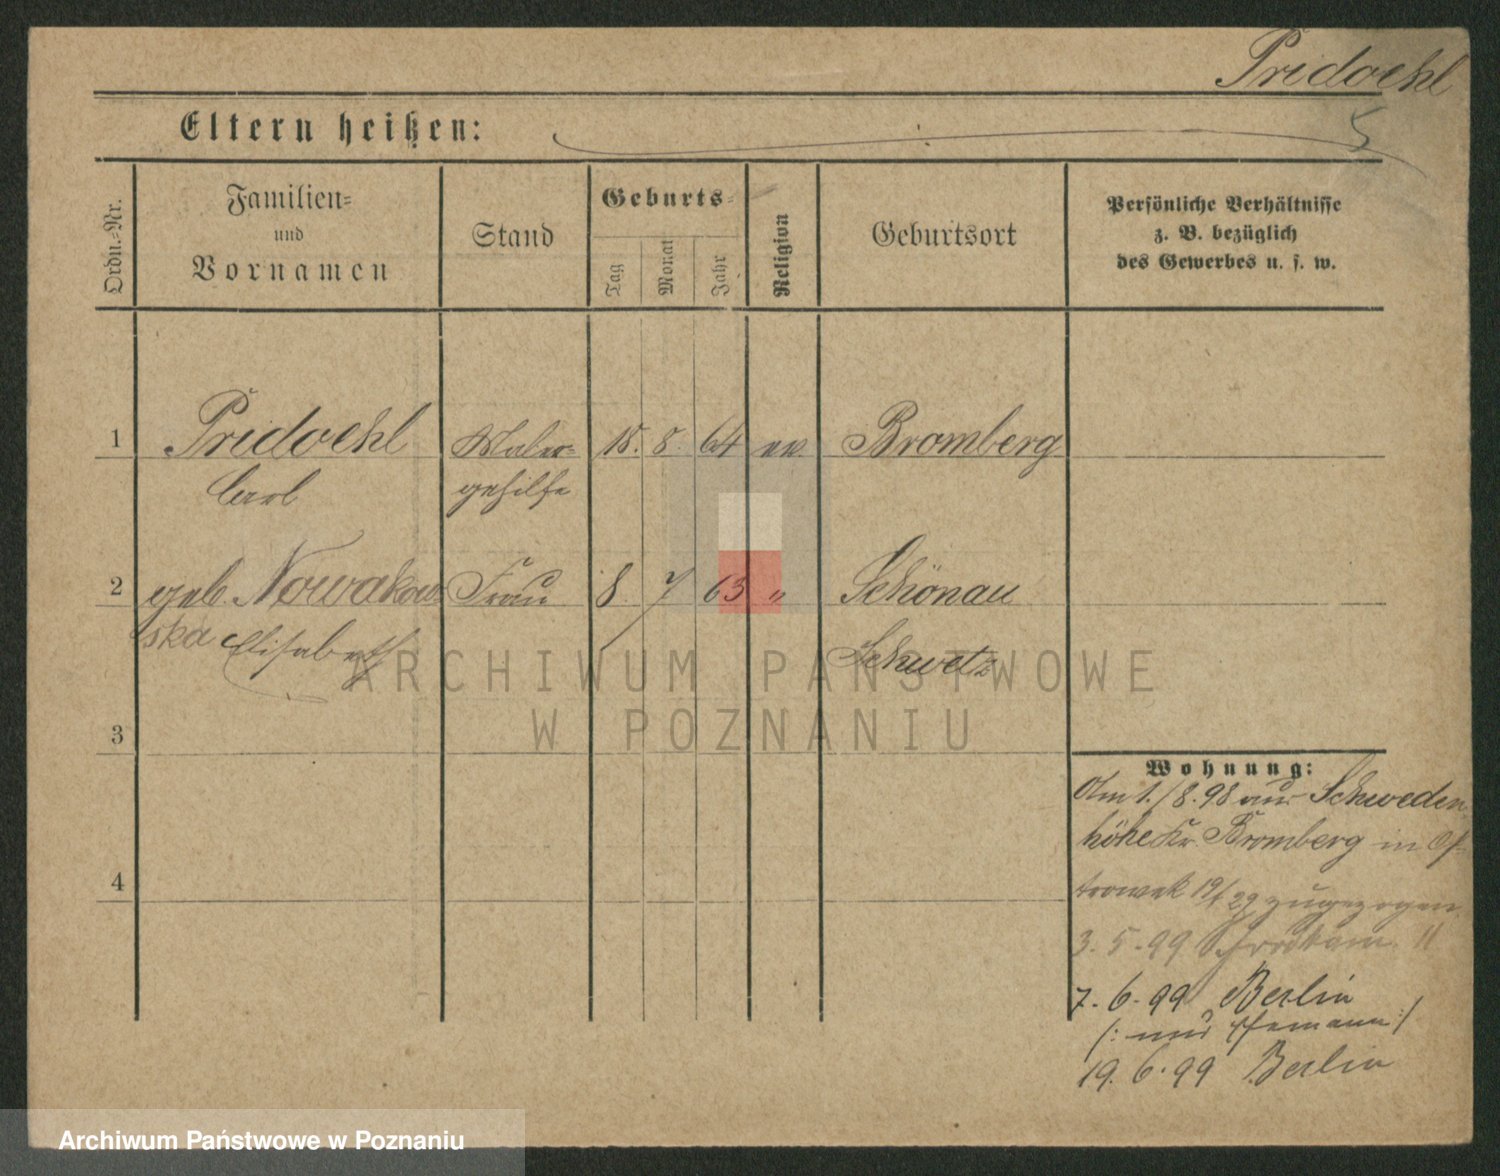 Pridoehl
5
Eltern heißen:
Ordn.-Nr.
Familien-
und
Vornamen
Stand
Geburts-
Tag
Monat
Jahr
Religion
Geburtsort
Persönliche Verhältnisse
z. B. bezüglich
des Gewerbes u. s. w.
1 Pridoehl Maler- 18. 8. 64 ev. Bromberg
Carl gehilfe
2 geb. Nowakow- Frau 8 7 63 " Schönau
ska Elisabeth Schwetz
3
4
Wohnung:
Am 1./8.98 aus Schweden-
höhe Kr. Bromberg in
zugezogen
3.5.99 11
7.6.99 Berlin
/: nur Ehemann :/
19.6.99 Berlin
ARCHIWUM PAŃSTWOWE
W POZNANIU
Archiwum Państwowe w Poznaniu